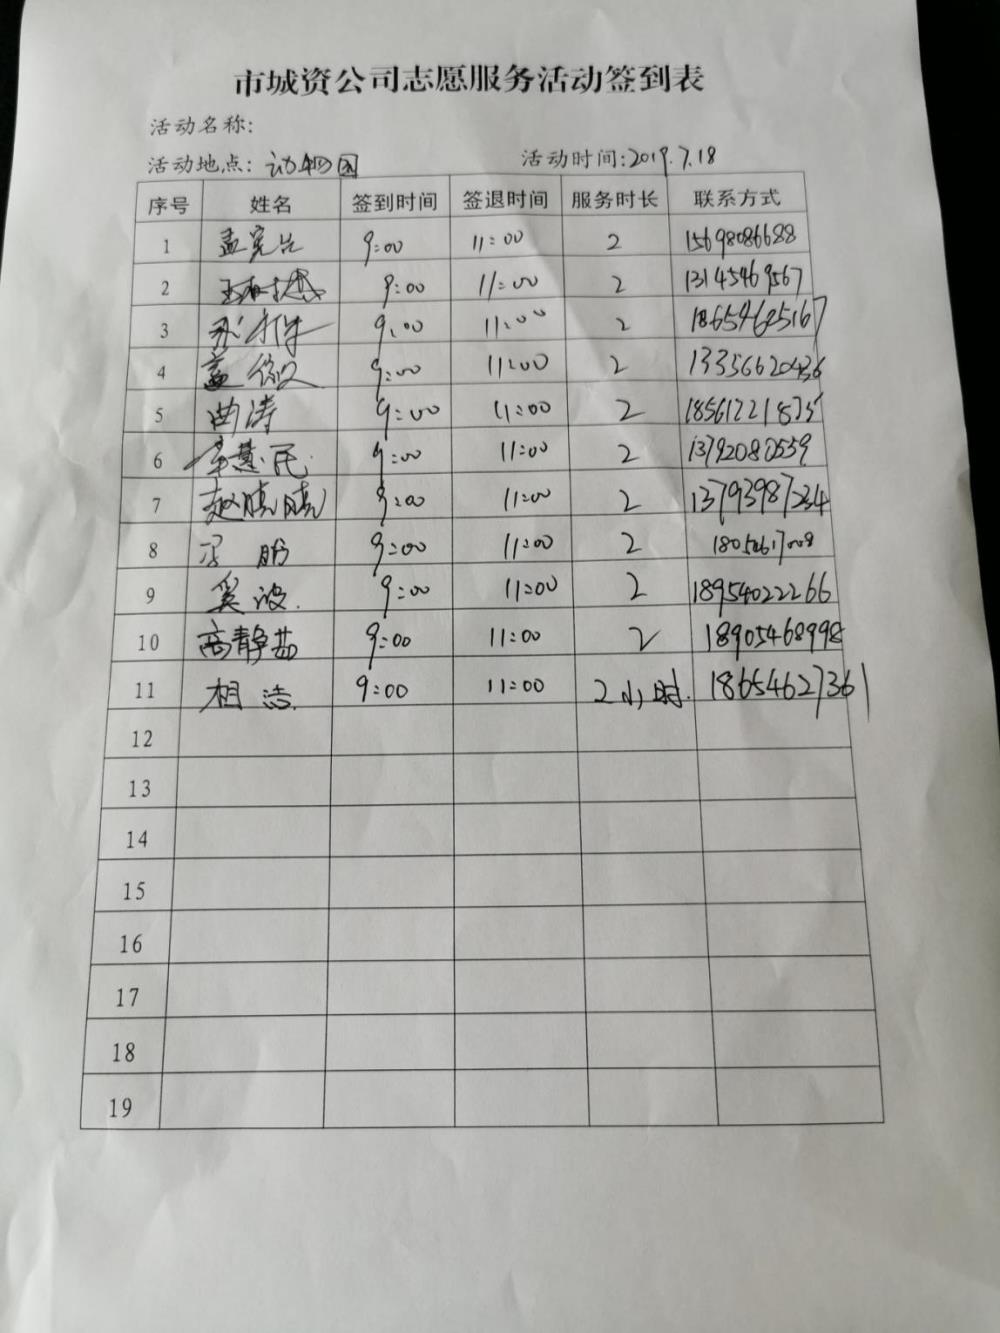 市城资公司志愿服务活动签到表
活动名称:
活动地点: 动物园 活动时间:2019.7.18
序号 姓名 签到时间 签退时间 服务时长 联系方式
1 9:00 11:00 2 15698086688
2 9:00 11:00 2 13145469567
3 9:00 11:00 2 18654685167
4 9:00 11:00 2 13356620436
5 曲涛 9:00 11:00 2
6 李慧民 9:00 11:00 2 13792080559
7 赵晓晓 9:00 11:00 2 13793987234
8 9:00 11:00 2
9 奚波 9:00 11:00 2 18954022266
10 高静茹 9:00 11:00 2 18905468998
11 相洁 9:00 11:00 2小时. 18654627361
12
13
14
15
16
17
18
19